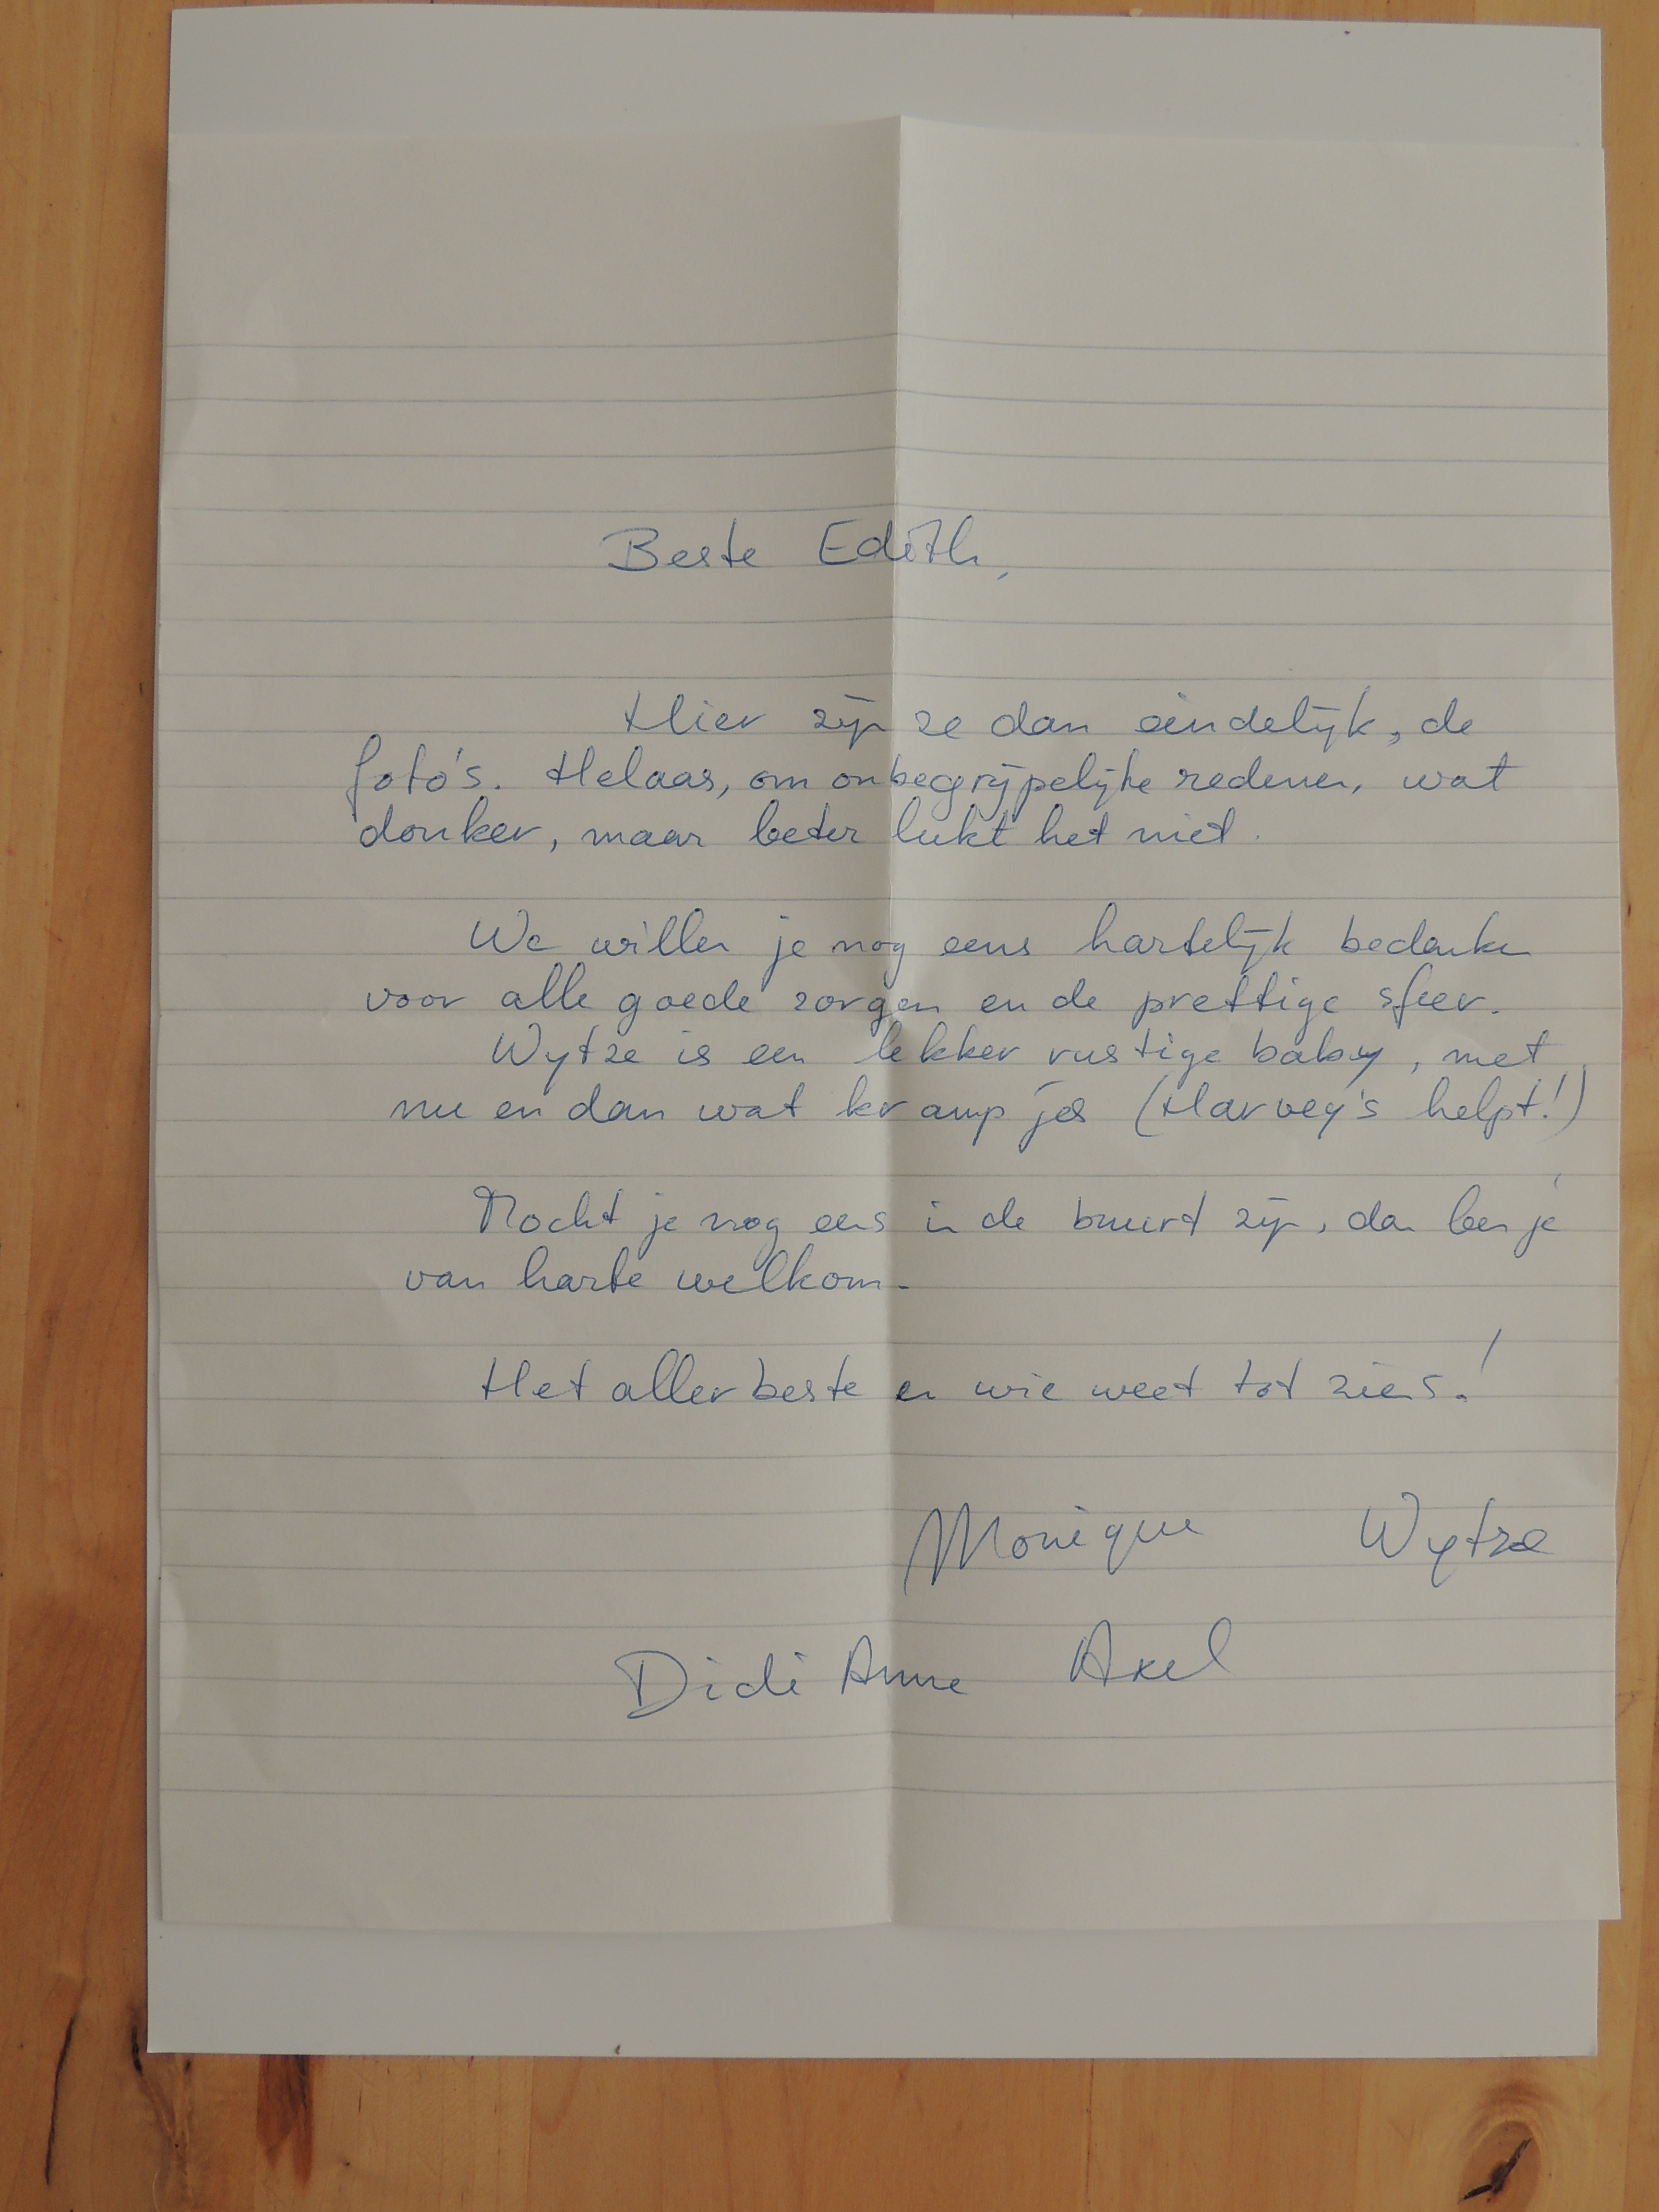 Beste Edith,
Hier zijn ze dan eindelijk, de
foto's. Helaas, om onbegrijpelijke redenen, wat
donker, maar beter lukt het niet.
We willen je nog eens hartelijk bedanken
voor alle goede zorgen en de prettige sfeer.
Wytze is een lekker rustige baby, met
nu en dan wat krampjes (Harvey's helpt!)
Mocht je nog eens in de buurt zijn, dan ben je
van harte welkom.
Het allerbeste en wie weet tot ziens!
Monique Wytze
Didi Anne Axel